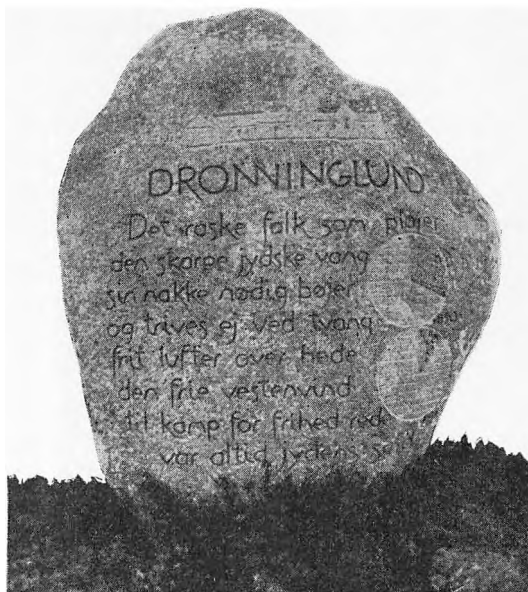 DRONNINGLUND
Det raske folk som pløjer
den skarpe jydske vang
sin nakke nødig bøjer
og trives ej ved tvang
frit lufter over hede
den frie vestenvind
til kamp for frihed rede
var altid jydens